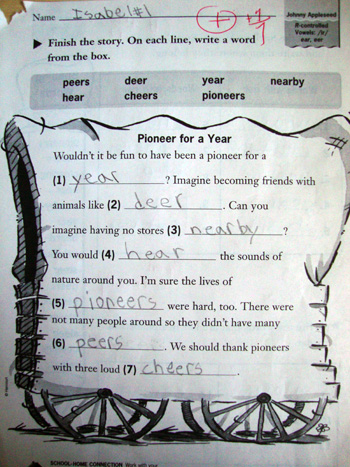 Name Isabel #1
+ +7/7
Johnny Appleseed
R-controlled
Vowels: /ir/
ear, eer
▶ Finish the story. On each line, write a word
from the box.
peers deer year nearby
hear cheers pioneers
Pioneer for a Year
Wouldn't it be fun to have been a pioneer for a
(1) year ? Imagine becoming friends with
animals like (2) deer . Can you
imagine having no stores (3) nearby ?
You would (4) hear the sounds of
nature around you. I'm sure the lives of
(5) pioneers were hard, too. There were
not many people around so they didn't have many
(6) peers . We should thank pioneers
with three loud (7) cheers .
SCHOOL-HOME CONNECTION Work with your